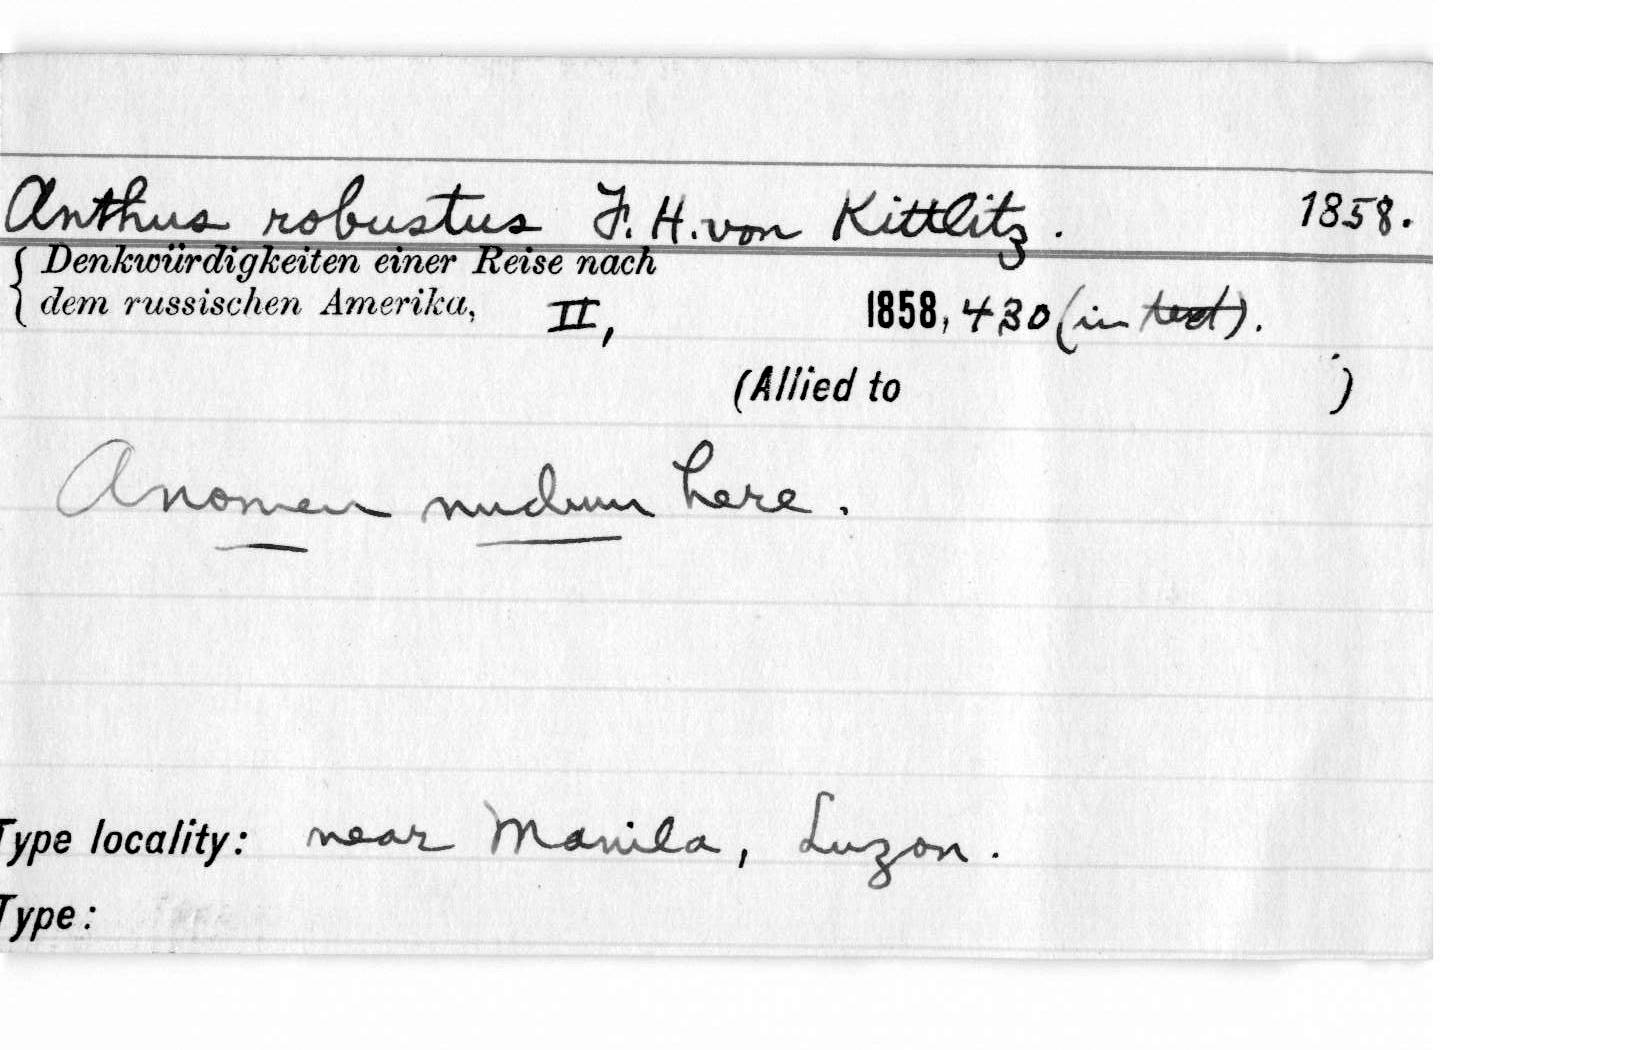 Anthus robustus F. H. von Kittlitz. 1858.
Denkwürdigkeiten einer Reise nach
dem russischen Amerika, II, 1858, 430 (in text).
(Allied to )
A nomen nudum here.
Type locality: near Manila, Luzon.
Type: